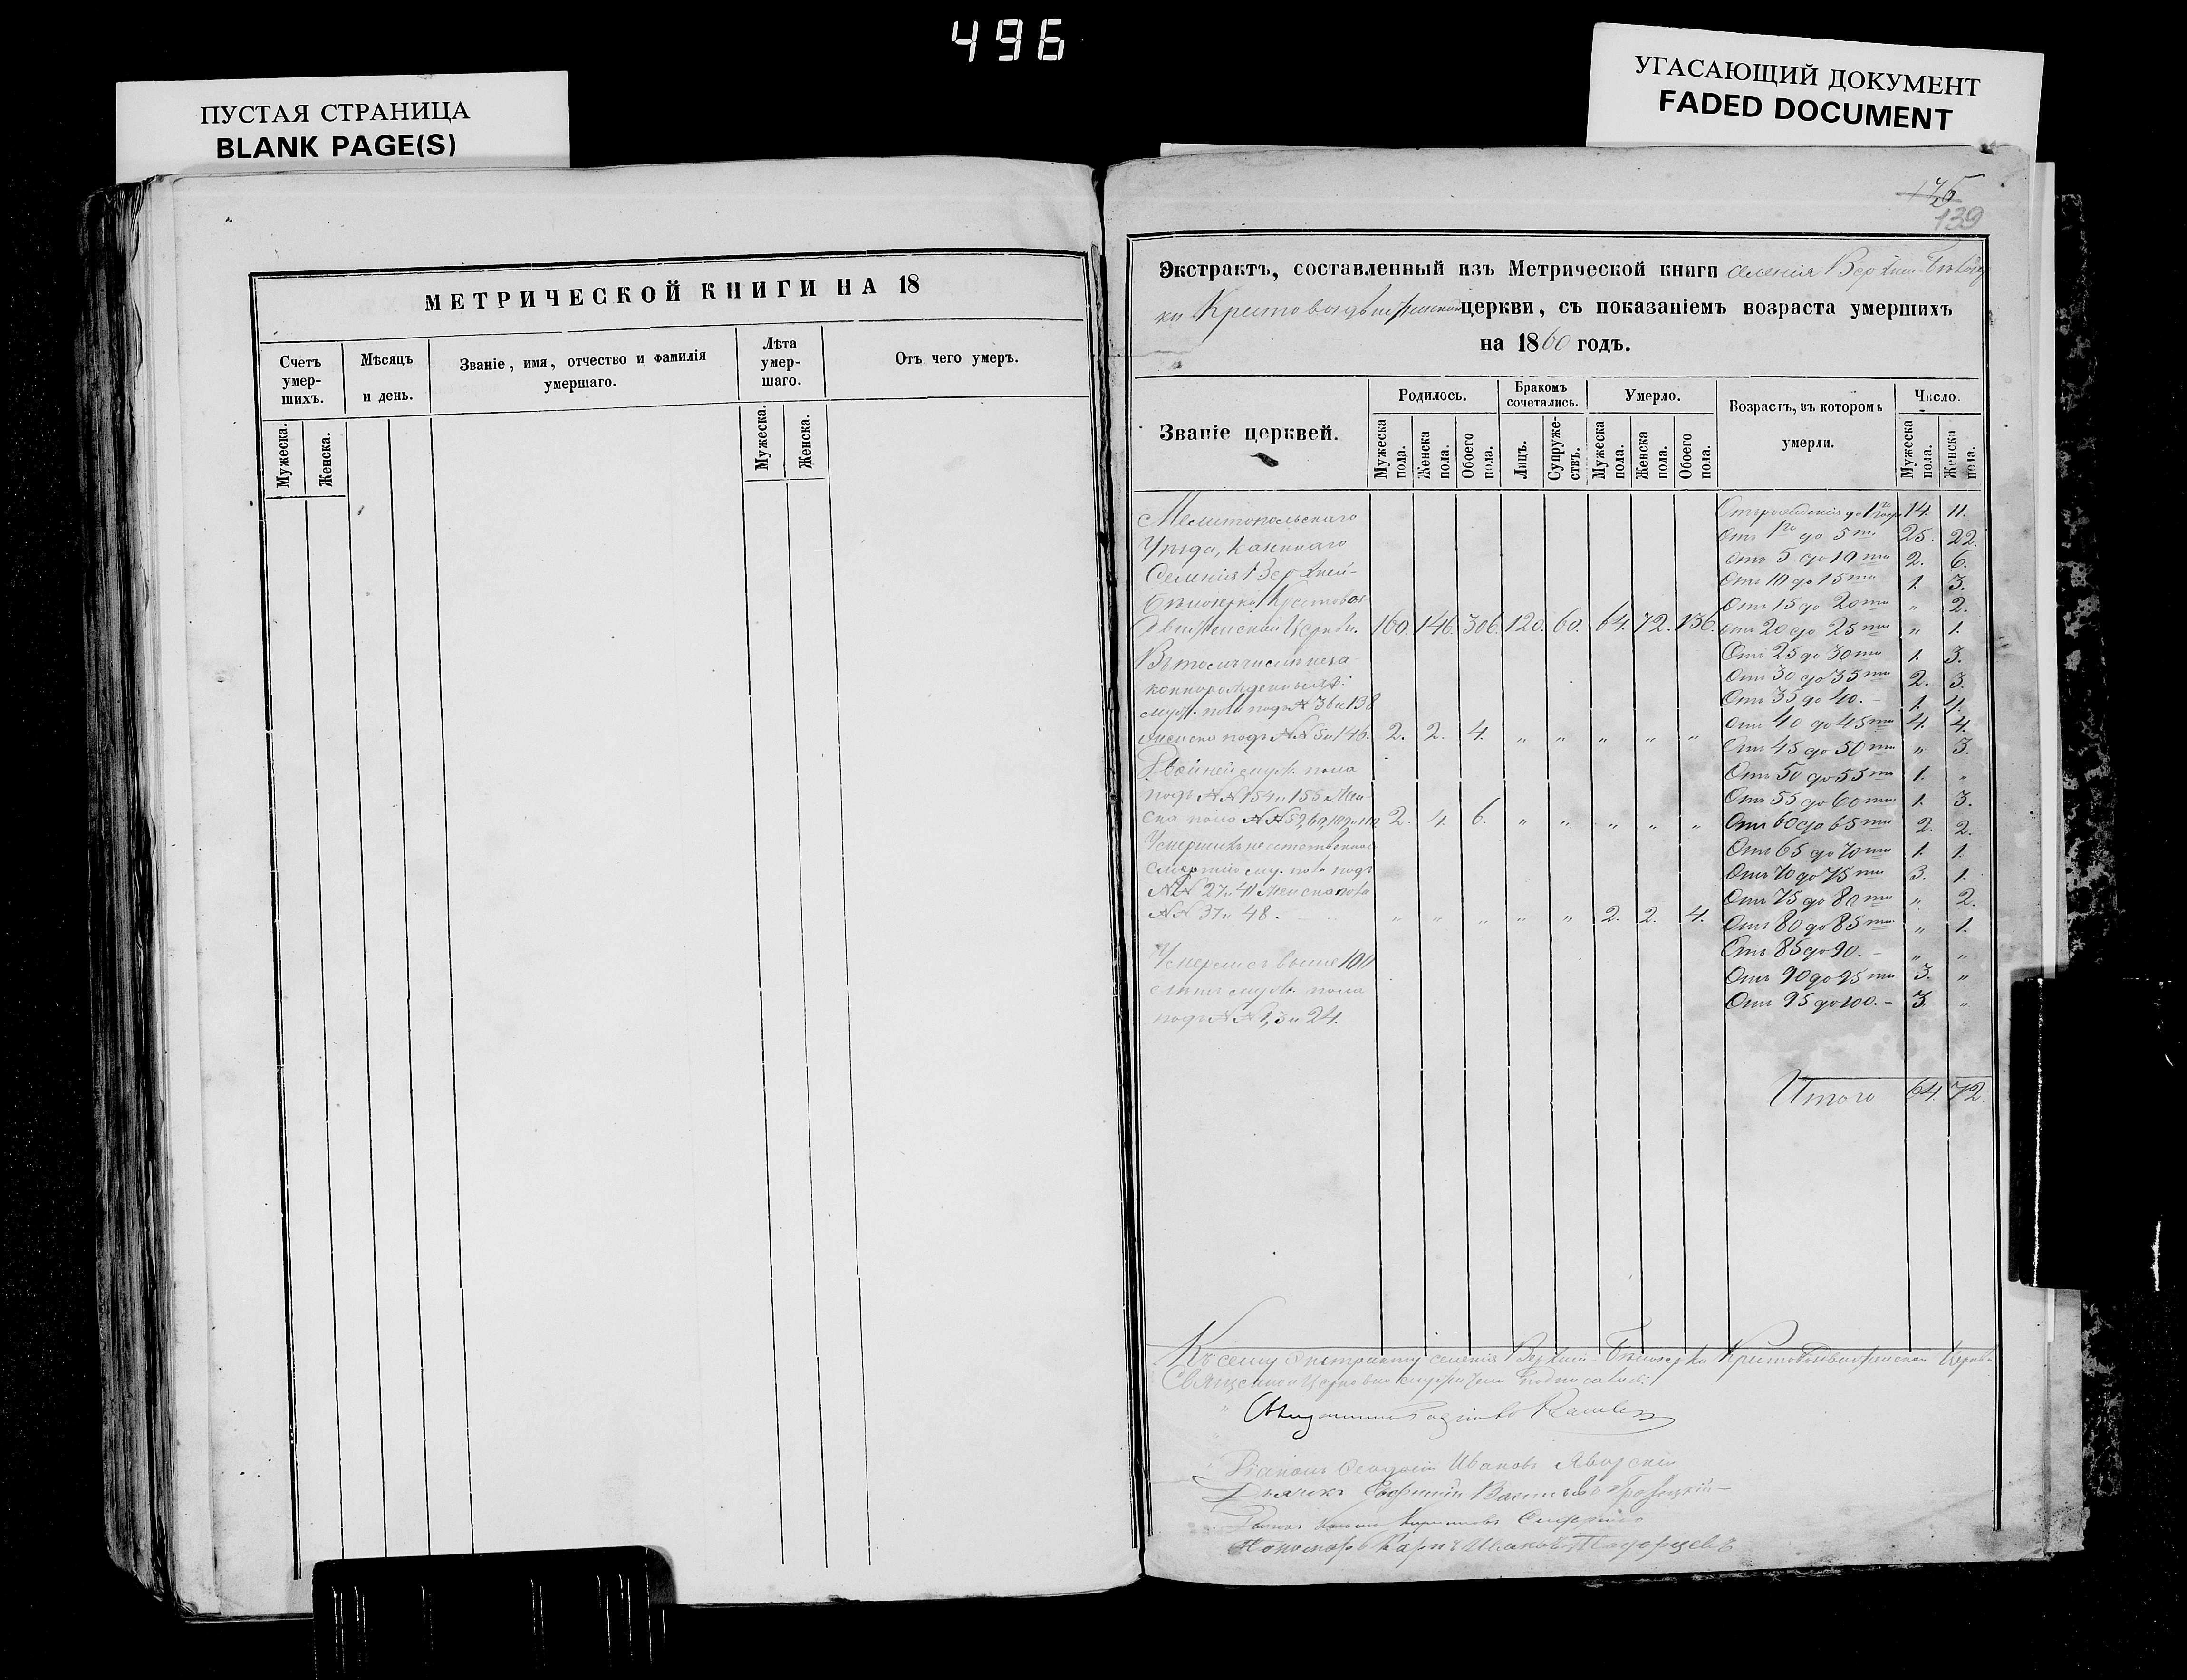 496
ПУСТАЯ СТРАНИЦА
BLANK PAGE(S)
УГАСАЮЩИЙ ДОКУМЕНТ
FADED DOCUMENT
МЕТРИЧЕСКОЙ КНИГИ НА 18
Счетъ умер-шихъ.
Мѣсяцъ и день.
Званіе, имя, отчество и фамилія умершаго.
Лѣта умер-шаго.
Отъ чего умеръ.
Мужеска.
Женска.
Мужеска.
Женска.
139
Экстрактъ, составленный изъ Метрической книги селенія Верхней Бѣлозер
ки Крестовоздвиженской церкви, съ показаніемъ возраста умершихъ
на 1860 годъ.
Званіе церквей.
Родилось.
Бракомъ сочетались.
Умерло.
Возрастъ, въ которомъ умерли.
Число.
Мужеска пола.
Женска пола.
Обоего пола.
Лицъ.
Супруже-ствъ.
Мужеска пола.
Женска пола.
Обоего пола.
Мужеска пола.
Женска пола.
Мелитопольскаго
Уѣзда, Казеннаго
Селенія Верхней-
Бѣлозерки Крестовоз-
движенской Церкви. 160. 146. 306. 120. 60. 64. 72. 136.
Въ томъ числѣ неза
коннорожденныхъ:
муж. пола подъ № 36 и 138
женска подъ №№ 5 и 146. 2. 2. 4. „ „ „ „ „
Двойней муж. пола
подъ №№ 154 и 155 Жен-
ска пола №№ 59, 60, 109 и 110 2. 4. 6. „ „ „ „ „
Умершихъ неестественною
смертію му. пола подъ
№№ 27 и 41 Женска пола
№№ 37 и 48. „ „ „ „ „ 2. 2. 4.
Умершихъ выше 100
лѣтъ муж. пола
подъ №№ 1, 3 и 24.
Отъ рожденія до 1го года 14. 11.
Отъ 1го до 5ти 25. 22.
Отъ 5 до 10ти 2. 6.
Отъ 10 до 15ти 1. 3.
Отъ 15 до 20ти „ 2.
Отъ 20 до 25ти „ 1.
Отъ 25 до 30ти 1. 3.
Отъ 30 до 35ти 2. 3.
Отъ 35 до 40. - 1. 4.
Отъ 40 до 45ти 4. 4.
Отъ 45 до 50ти „ 3.
Отъ 50 до 55ти 1. „
Отъ 55 до 60ти 1. 3.
Отъ 60 до 65ти 2. 2.
Отъ 65 до 70ти 1. 1.
Отъ 70 до 75ти 3. 1.
Отъ 75 до 80ти „ 2.
Отъ 80 до 85ти „ 1.
Отъ 85 до 90. - „ „
Отъ 90 до 95ти 3. „
Отъ 95 до 100. - 3. „
Итого 64. 72.
Къ сему Экстракту селенія Верхней-Бѣлозерки Крестовоздвиженской Церкви
Священно и Церковно служители подписались:
Священникъ
Діаконъ Феодосій Ивановъ Яворскій
Дьячекъ Васильевъ
Пономарь Карпъ Ивановъ